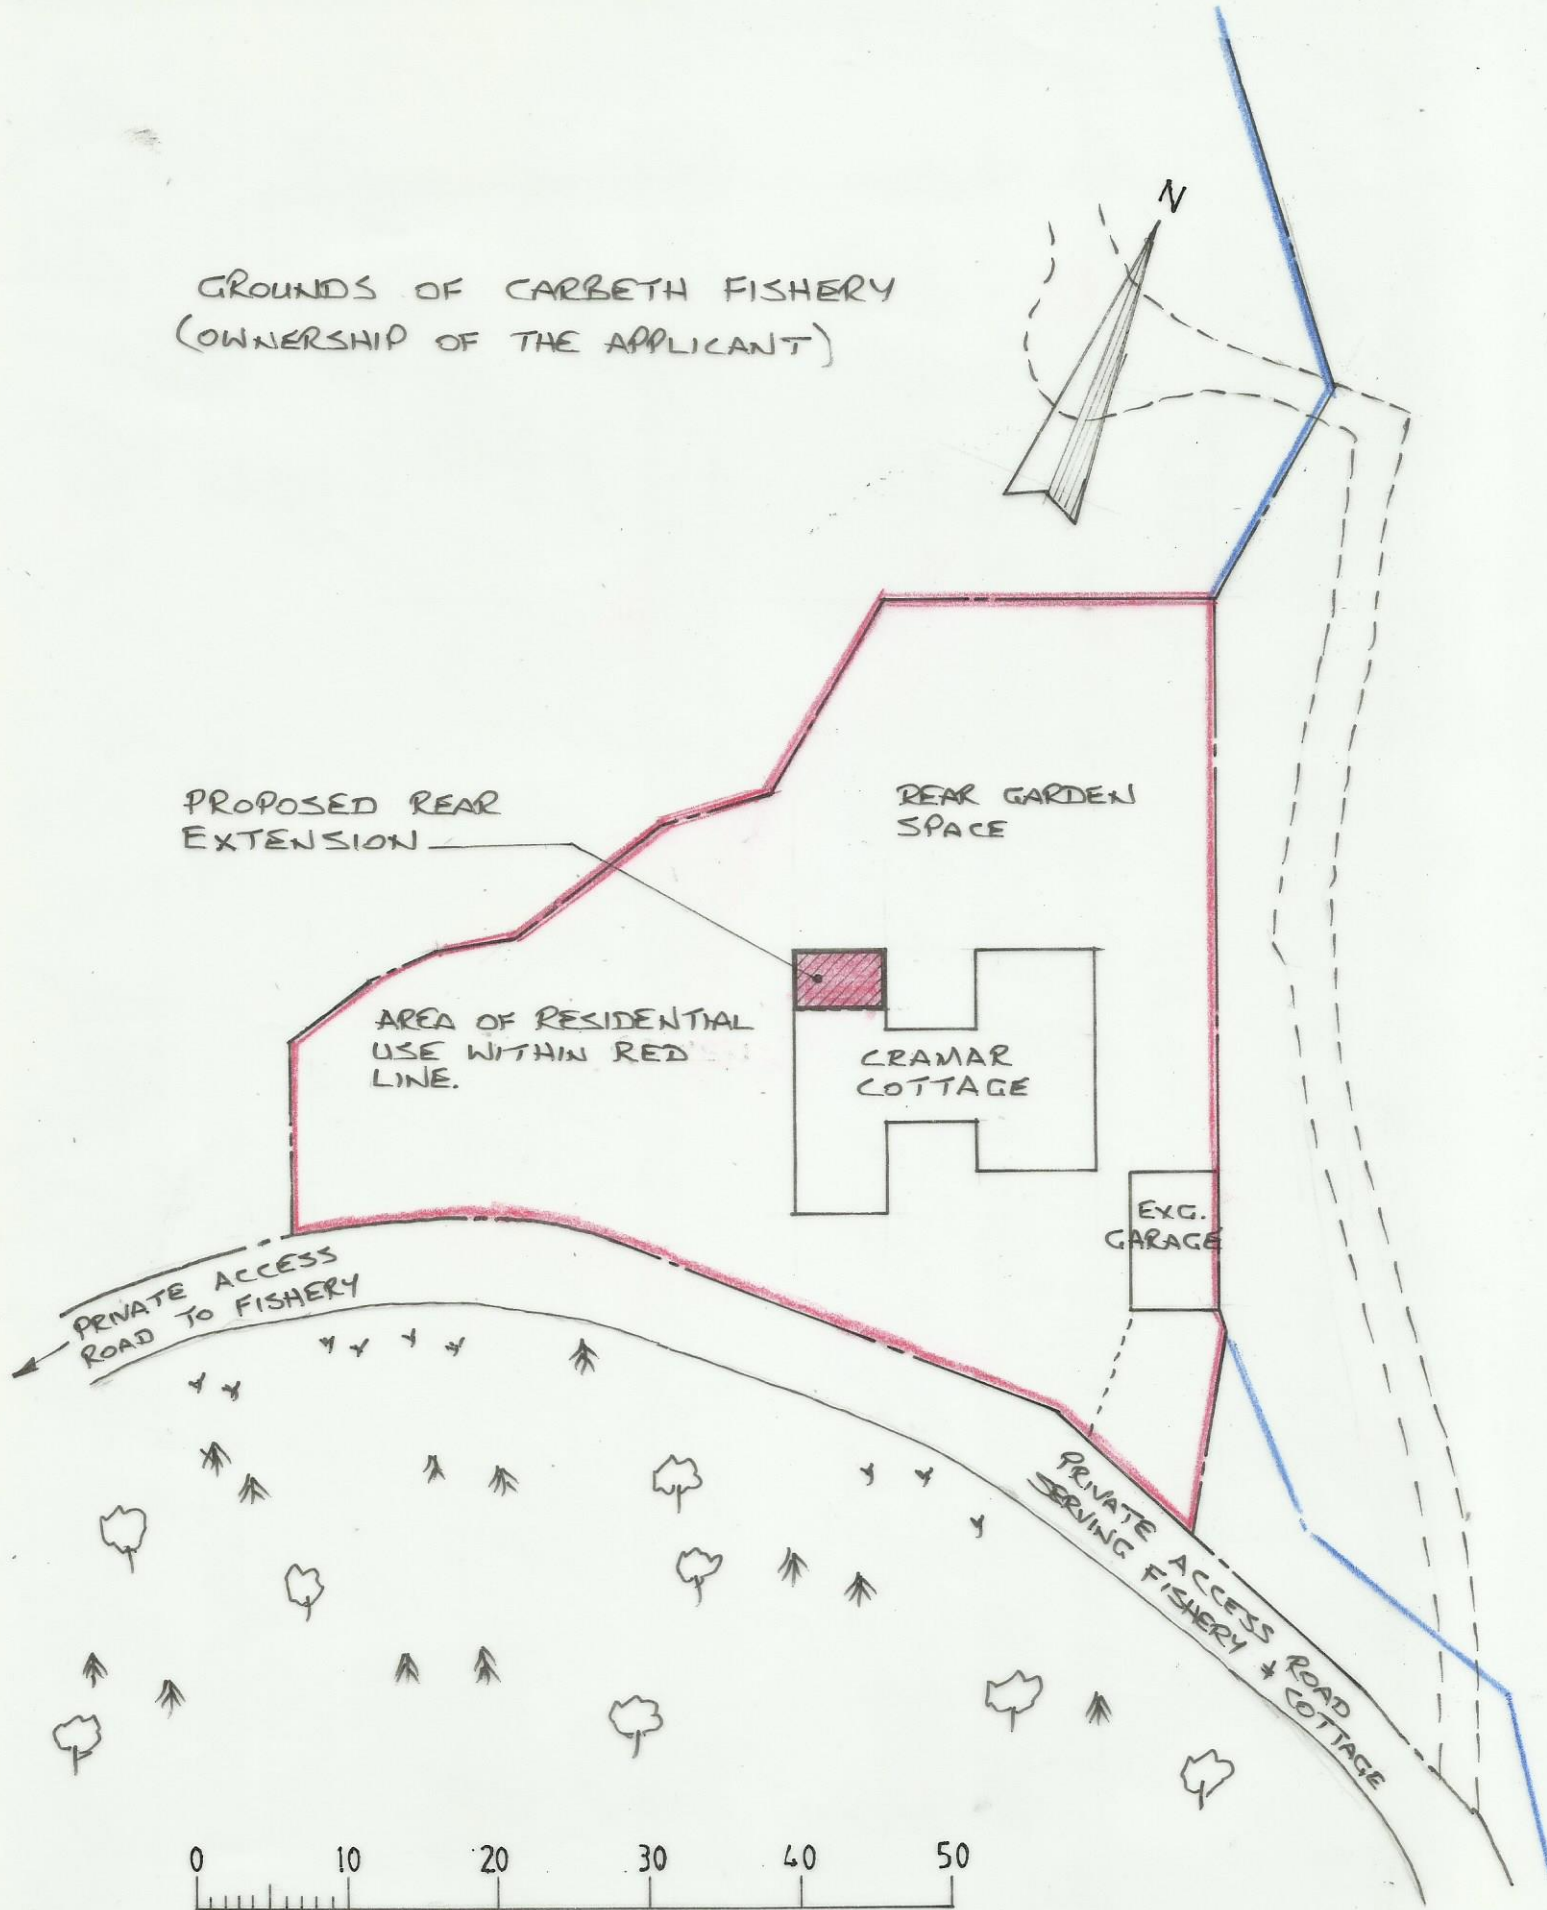 N
GROUNDS OF CARBETH FISHERY
(OWNERSHIP OF THE APPLICANT)
PROPOSED REAR
EXTENSION
REAR GARDEN
SPACE
AREA OF RESIDENTIAL
USE WITHIN RED
LINE.
CRAMAR
COTTAGE
EXG.
GARAGE
PRIVATE ACCESS
ROAD TO FISHERY
PRIVATE ACCESS ROAD
SERVING FISHERY & COTTAGE
0 10 20 30 40 50